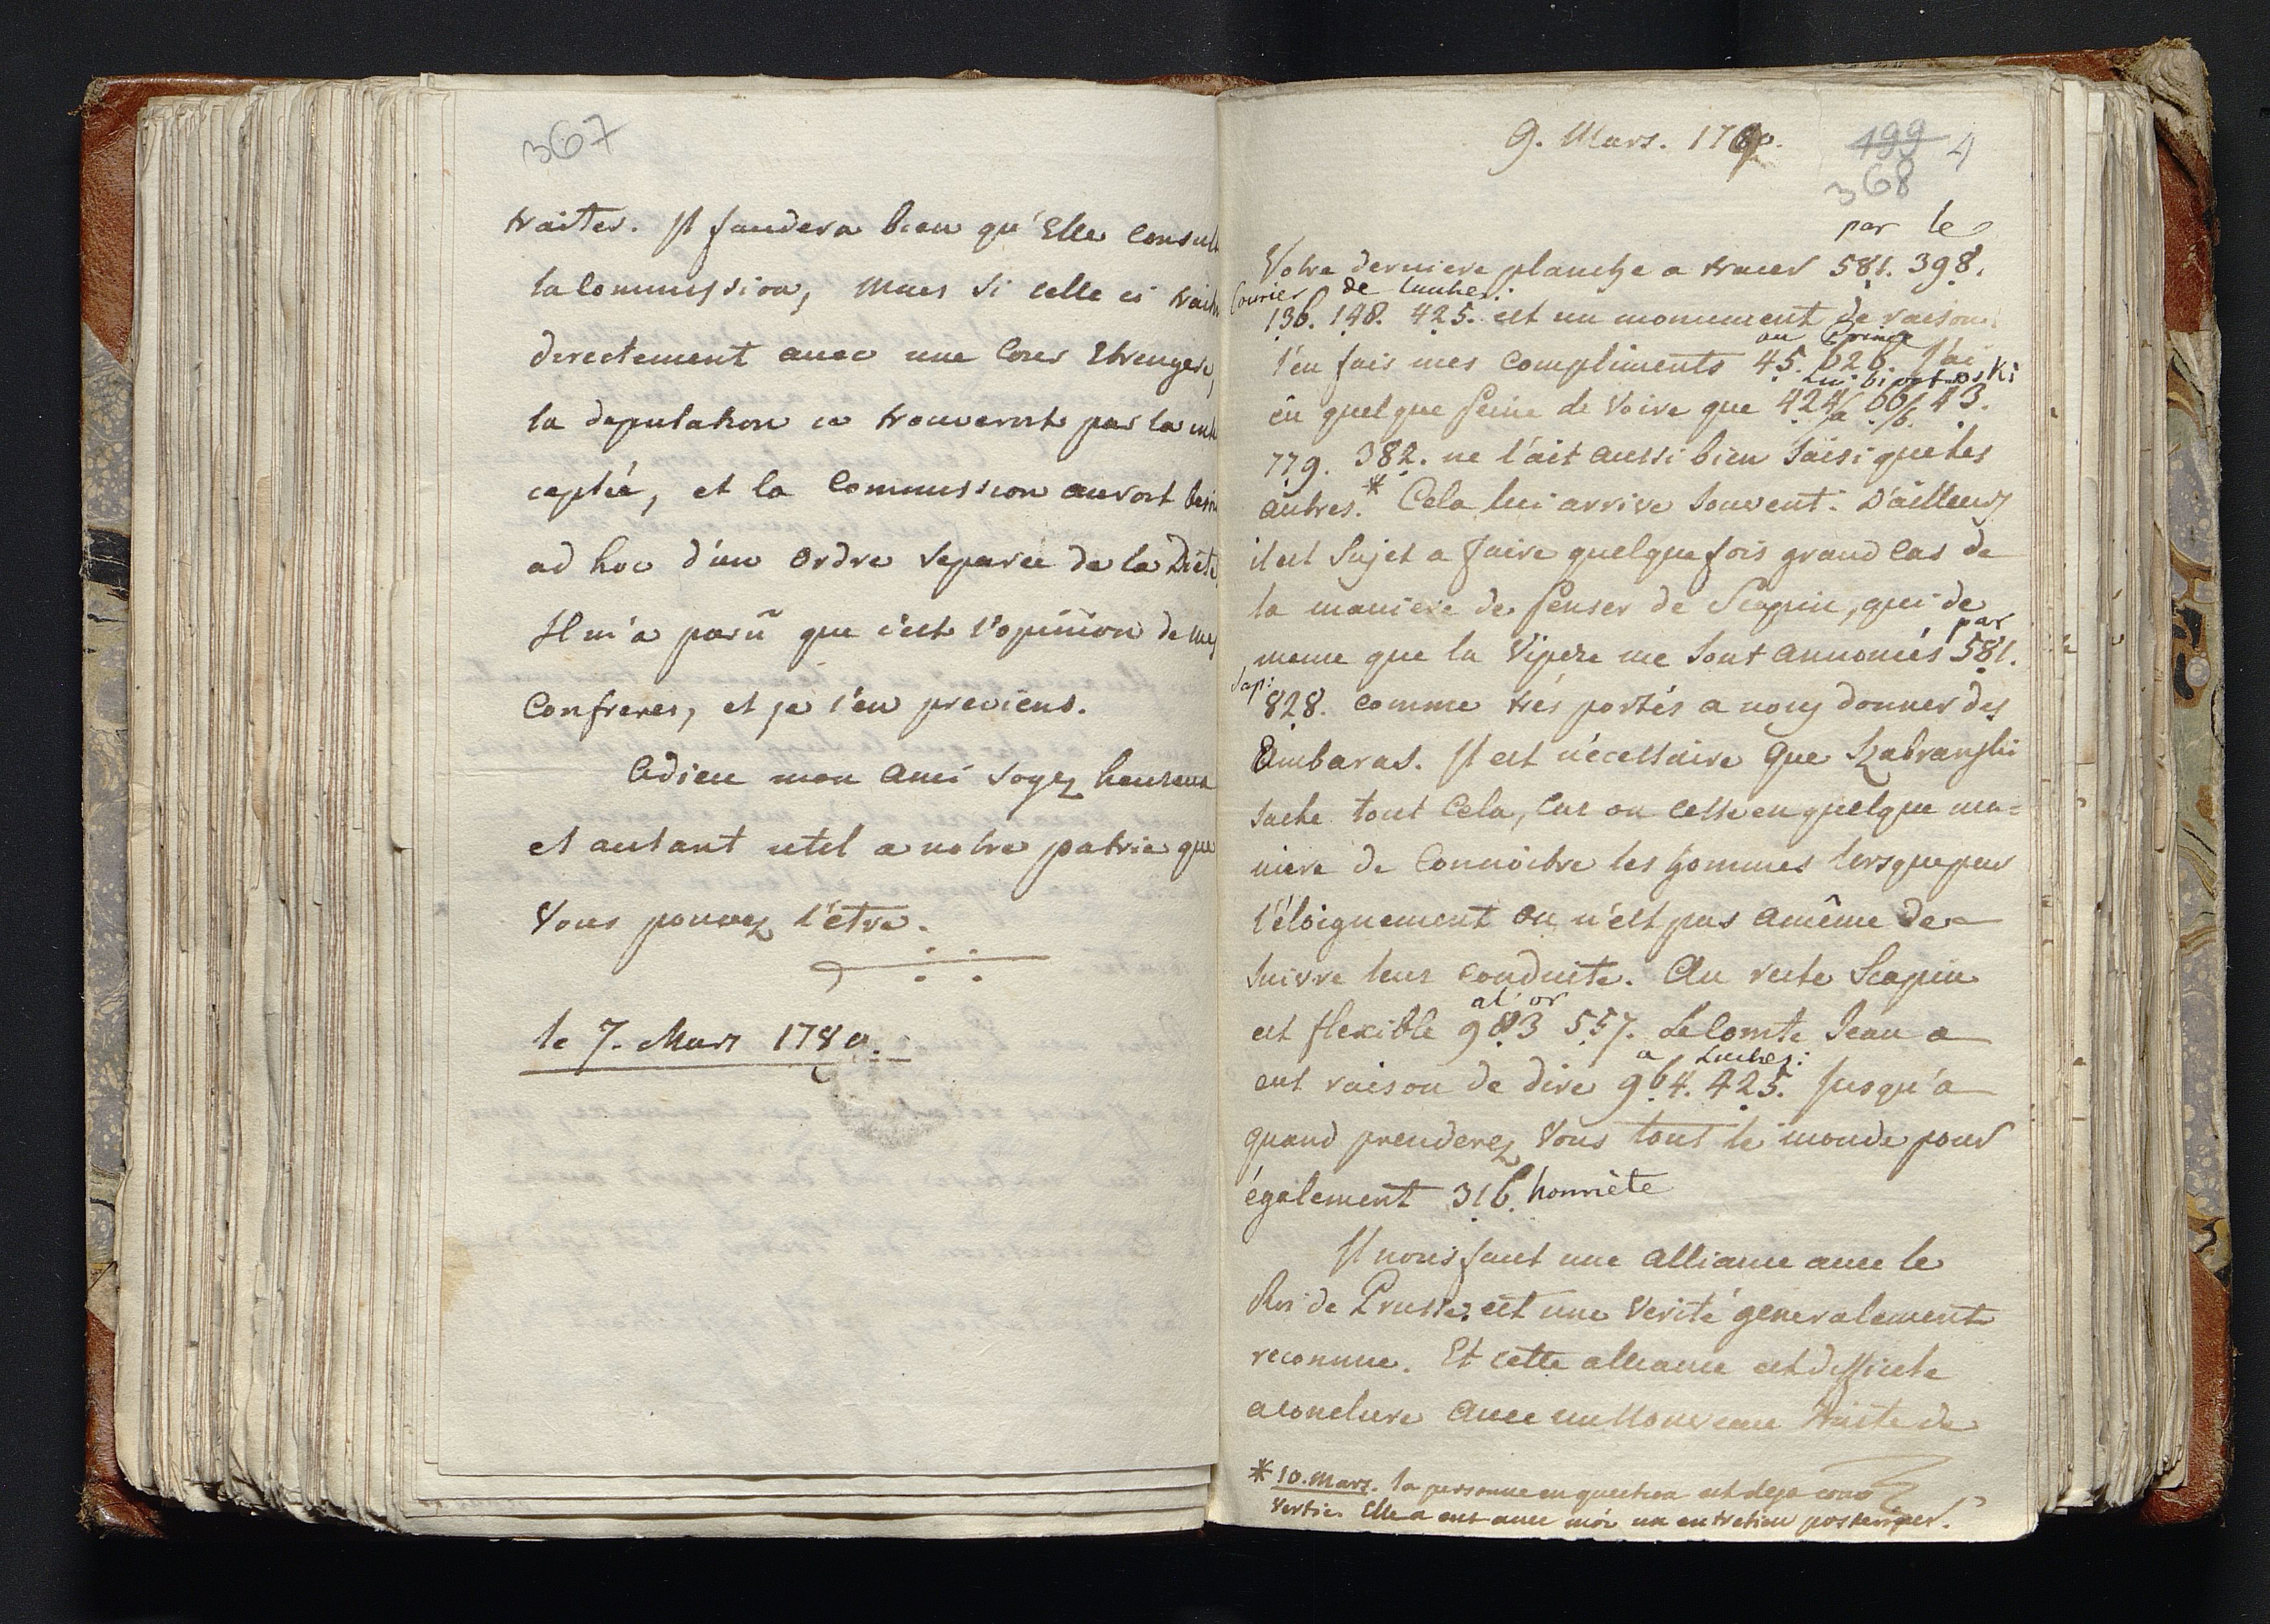 367
traiter. Il faudera bien qu'Elle consult
la Commission, mais si celle ci trait
directement avec une Cour Etrangere,
la deputation se trouverat par la
ceptée, et la Commission aurat besoin
ad hoc d'un ordre separée de la Diete
Il m'a parû que c'est l'opinion de mes
Confreres, et je l'en previens.
Adieu mon ami soyez heureux
et autant util a notre patrie que
Vous pouvez l'être.
le 7. Mars 1789.
9. Mars. 17
199 4
368
par le
Votre derniere planche a tracer 581. 398.
Courier de Luches:
136. 148. 425. est un monument de raison.
au Prince
J'en fais mes compliments 45. 626. J'ai
ki
eû quelque peine de Voire que 424/a 66/6. 43.
779. 382. ne l'ait aussi bien saisi que les
autres.* Cela lui arrive souvent. D'ailleurs
il est Sujet a faire quelque fois grand Cas de
la maniere de penser de Scapin, qui de
par
meme que la Vipere me sont annoncés 581.
Sap:
828. comme trés portés a nous donner des
Embaras. Il est nécessaire que Szabranski
sache tout Cela, Car on cesse en quelque ma=
niere de Connoitre les hommes lorsque par
l'éloignement on n'est pas amême de
suivre leur conduite. Au reste Scapin
al' or
est flexible 983 557. Le Comte Jean a
a Luches:
eut raison de dire 964. 425. Jusqu'a
quand prenderez Vous tout le monde pour
également 316. honnête
Il nous faut une alliance avec le
Roi de Prusse: est une Verité generalement
reconnue. Et cette alliance est difficile
a conclure avec un nouveau Traite de
* 10. Mars. la personne en question est deja con=
vertie. Elle a eut avec moi un entretien